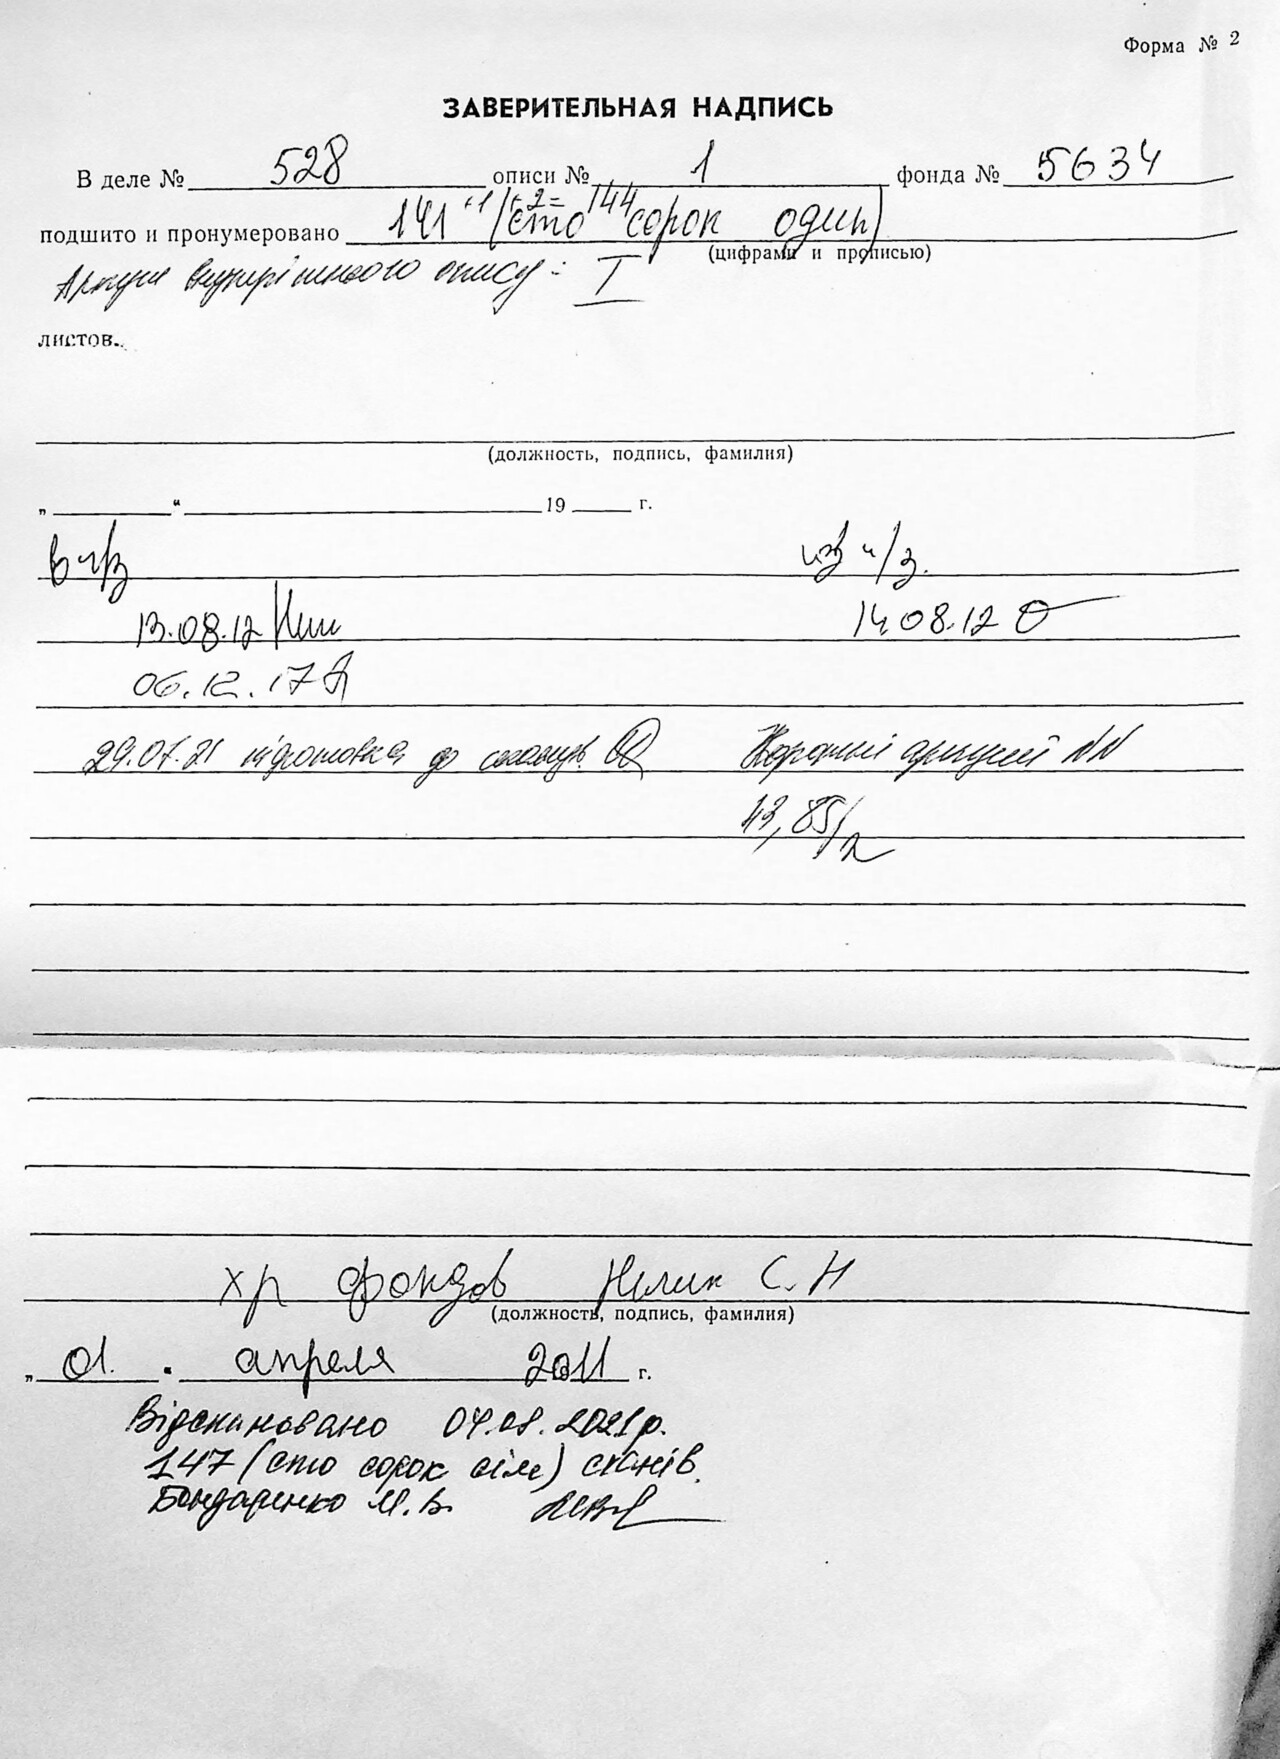 Форма № 2
ЗАВЕРИТЕЛЬНАЯ НАДПИСЬ
В деле № 528 описи № 1 фонда № 5634
подшито и пронумеровано 141 +1 +2= 144 (сто сорок один)
(цифрами и прописью)
Аркуш внутрішнього опису: 1
листов.
(должность, подпись, фамилия)
„ “ 19 г.
в ч/з из ч/з.
13.08.12 14.08.12
06.12.17
29.07.21 підготовка до сканув. аркушей NN
43, 85/2
хр фондов С.Н
(должность, подпись, фамилия)
„ 01. “ апреля 2011 г.
Відскановано 04.08.2021р.
147 (сто сорок сім) сканів.
Бондаренко М.В.